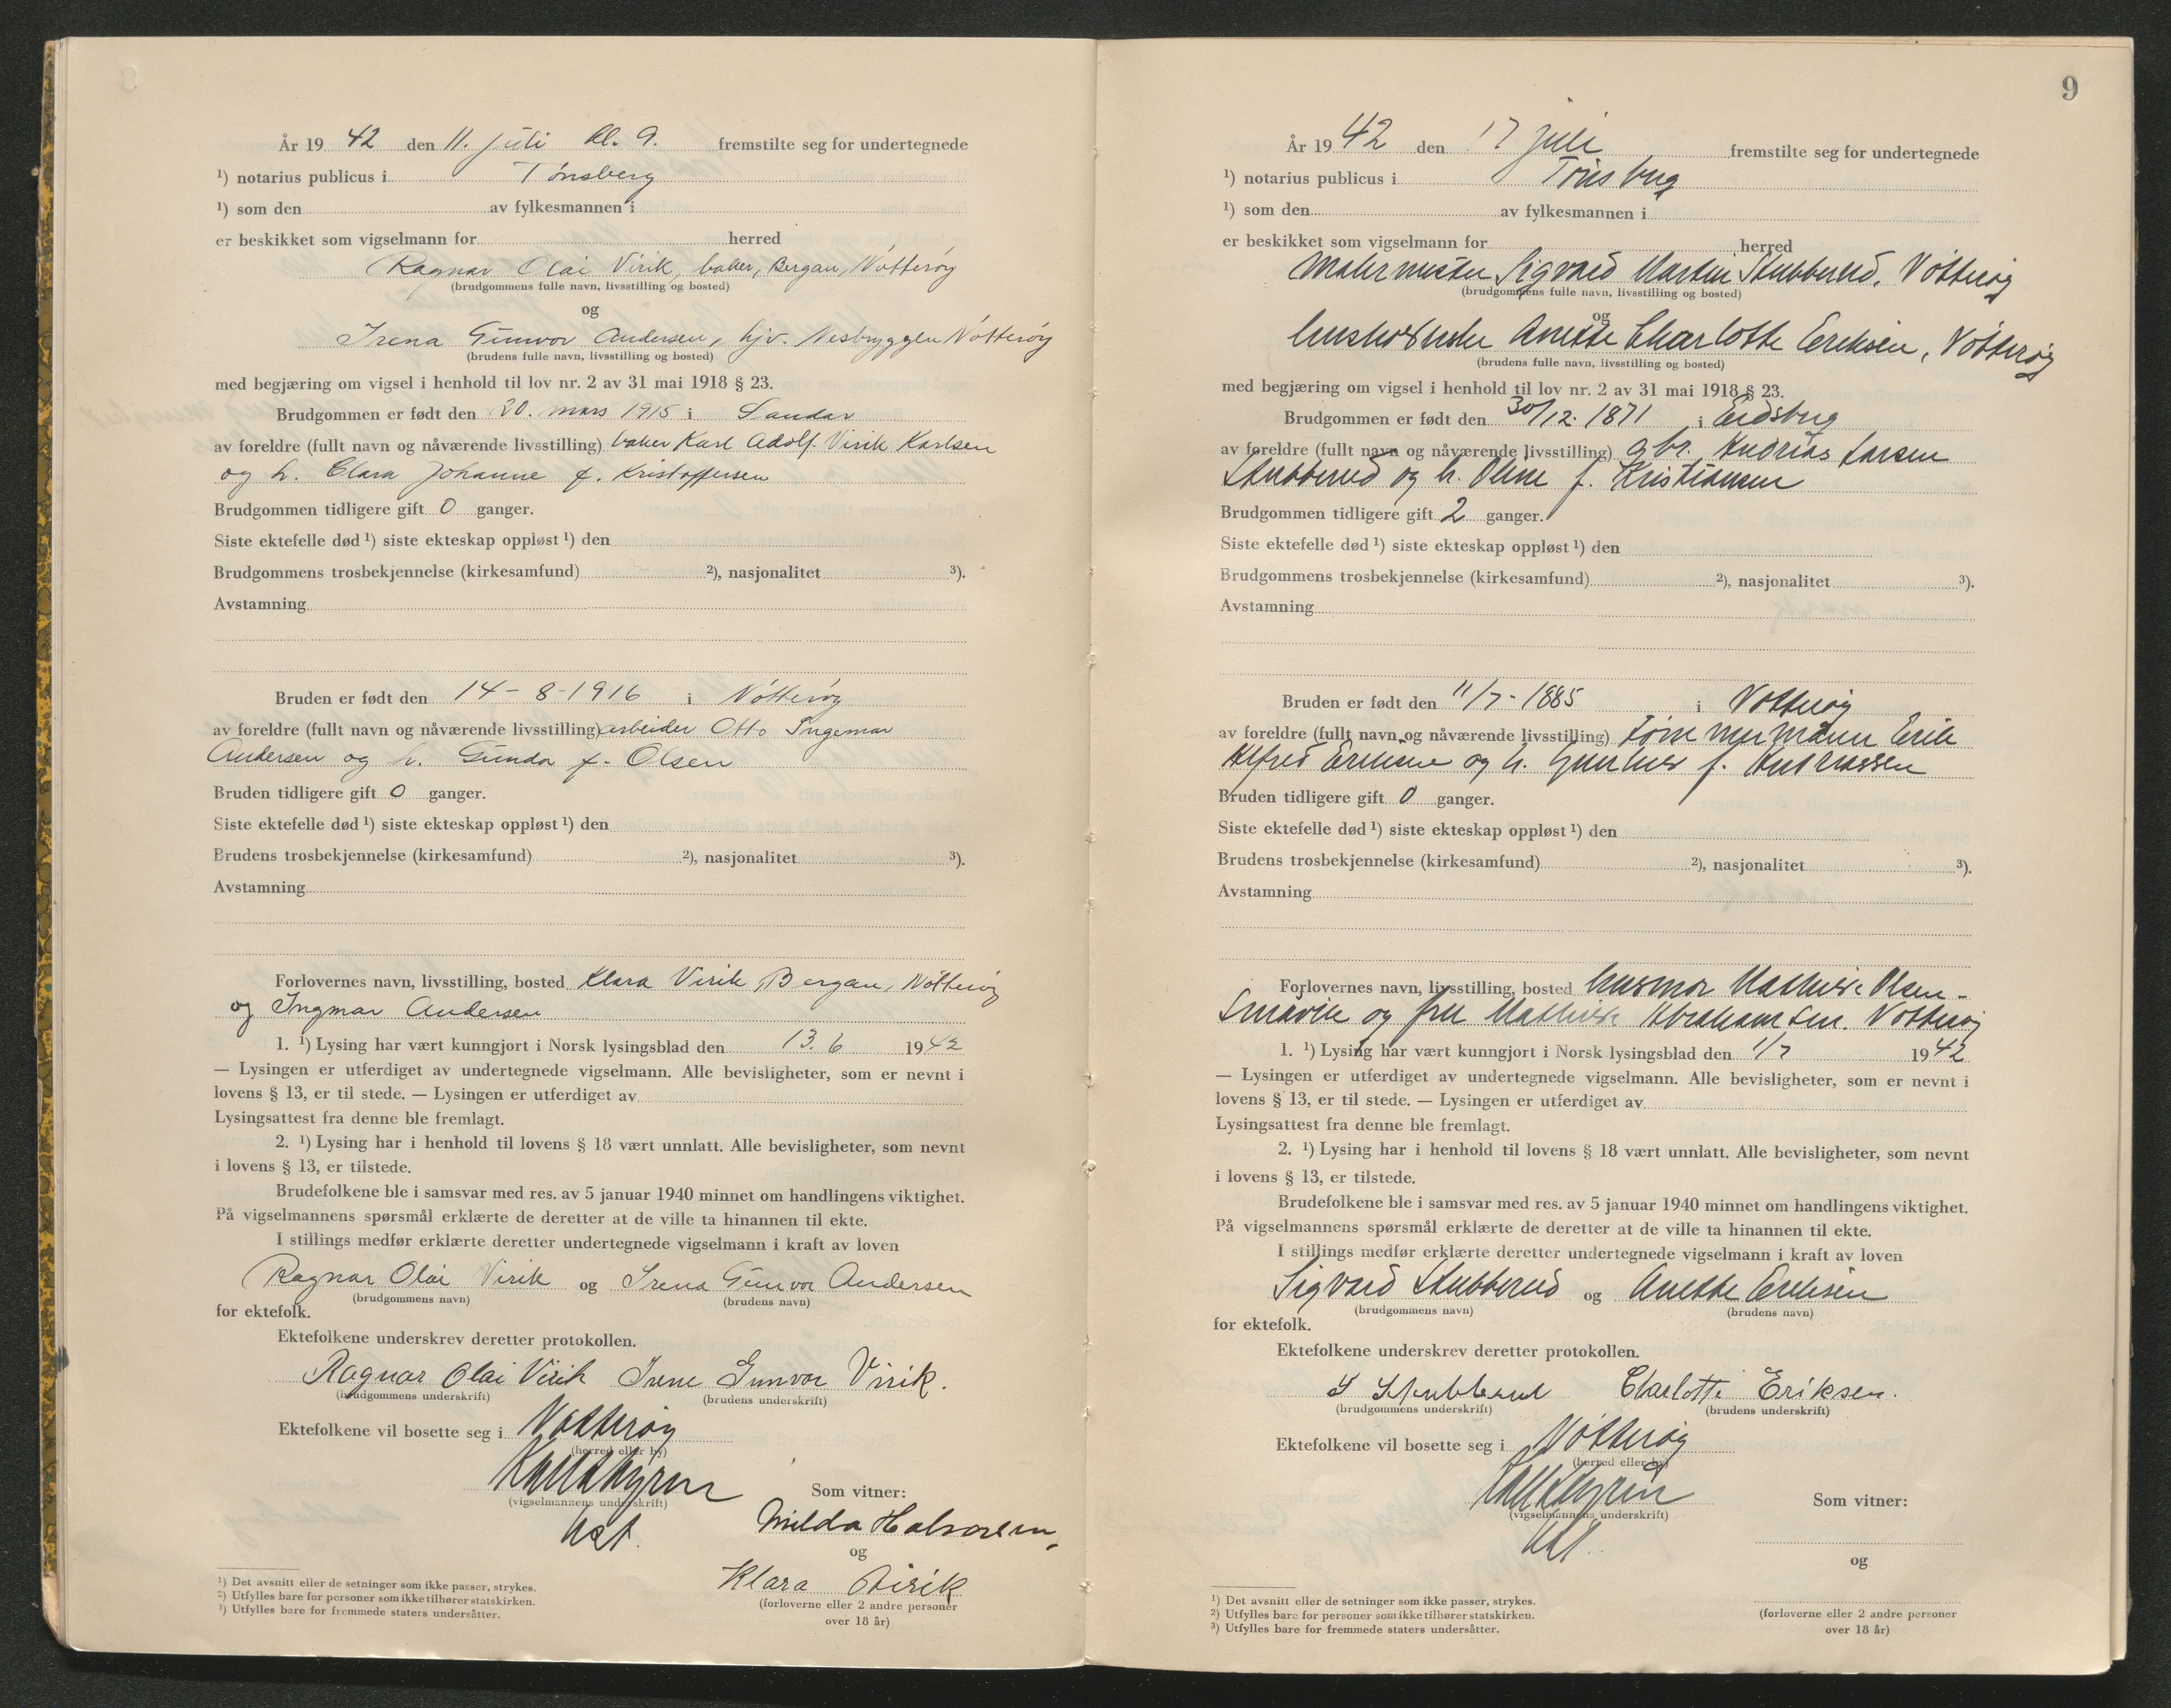 År 1942 den 11. juli kl. 9. fremstilte seg for undertegnede
¹) notarius publicus i Tønsberg
¹) som den av fylkesmannen i
er beskikket som vigselmann for herred
Ragnar Olai Virik, baker, Bergan, Nøtterøy
(brudgommens fulle navn, livsstilling og bosted)
og
Irena Gunvor Andersen, hjv. Nesbryggen Nøtterøy
(brudens fulle navn, livsstilling og bosted)
med begjæring om vigsel i henhold til lov nr. 2 av 31 mai 1918 § 23.
Brudgommen er født den 20. mars 1915 i Sandar
av foreldre (fullt navn og nåværende livsstilling) baker Karl Adolf Virik Karlsen
og h. Clara Johanne f. Kristoffersen
Brudgommen tidligere gift 0 ganger.
Siste ektefelle død ¹) siste ekteskap oppløst ¹) den
Brudgommens trosbekjennelse (kirkesamfund) ²), nasjonalitet ³).
Avstamning
Bruden er født den 14-8-1916 i Nøtterøy
av foreldre (fullt navn og nåværende livsstilling) arbeider Otto Ingemar
Andersen og h. Gunda f. Olsen
Bruden tidligere gift 0 ganger.
Siste ektefelle død ¹) siste ekteskap oppløst ¹) den
Brudens trosbekjennelse (kirkesamfund) ²), nasjonalitet ³).
Avstamning
Forlovernes navn, livsstilling, bosted Klara Virik, Bergan, Nøtterøy
og Ingmar Andersen
1. ¹) Lysing har vært kunngjort i Norsk lysingsblad den 13.6 1942
— Lysingen er utferdiget av undertegnede vigselmann. Alle bevisligheter, som er nevnt i
lovens § 13, er til stede. — Lysingen er utferdiget av
Lysingsattest fra denne ble fremlagt.
2. ¹) Lysing har i henhold til lovens § 18 vært unnlatt. Alle bevisligheter, som nevnt
i lovens § 13, er tilstede.
Brudefolkene ble i samsvar med res. av 5 januar 1940 minnet om handlingens viktighet.
På vigselmannens spørsmål erklærte de deretter at de ville ta hinannen til ekte.
I stillings medfør erklærte deretter undertegnede vigselmann i kraft av loven
Ragnar Olai Virik og Irena Gunvor Andersen
(brudgommens navn) (brudens navn)
for ektefolk.
Ektefolkene underskrev deretter protokollen.
Ragnar Olai Virik Irene Gunvor Virik.
(brudgommens underskrift) (brudens underskrift)
Ektefolkene vil bosette seg i Nøtterøy
(herred eller by)
(vigselmannens underskrift)
Som vitner:
Milda Halvorsen,
og
Klara Virik
(forloverne eller 2 andre personer
over 18 år)
¹) Det avsnitt eller de setninger som ikke passer, strykes.
²) Utfylles bare for personer som ikke tilhører statskirken.
³) Utfylles bare for fremmede staters undersåtter.
9
År 1942 den 17 juli fremstilte seg for undertegnede
¹) notarius publicus i Tønsberg
¹) som den av fylkesmannen i
er beskikket som vigselmann for herred
Malermester Sigvard Martin Stubberud, Nøtterøy
(brudgommens fulle navn, livsstilling og bosted)
og
Anette Charlotte Eriksen, Nøtterøy
(brudens fulle navn, livsstilling og bosted)
med begjæring om vigsel i henhold til lov nr. 2 av 31 mai 1918 § 23.
Brudgommen er født den 30/12. 1871 i Eidsberg
av foreldre (fullt navn og nåværende livsstilling) gbr. Andreas Larsen
Stubberud og h. Oline f. Kristiansen
Brudgommen tidligere gift 2 ganger.
Siste ektefelle død ¹) siste ekteskap oppløst ¹) den
Brudgommens trosbekjennelse (kirkesamfund) ²), nasjonalitet ³).
Avstamning
Bruden er født den 11/7-1885 i Nøtterøy
av foreldre (fullt navn og nåværende livsstilling) tømmermann Erik
Alfred Eriksen og h. f. Andreassen
Bruden tidligere gift 0 ganger.
Siste ektefelle død ¹) siste ekteskap oppløst ¹) den
Brudens trosbekjennelse (kirkesamfund) ²), nasjonalitet ³).
Avstamning
Forlovernes navn, livsstilling, bosted husmor Mathilde Olsen-
Smidvik og fru Mathilde Abrahamsen. Nøtterøy
1. ¹) Lysing har vært kunngjort i Norsk lysingsblad den 1/7 1942
— Lysingen er utferdiget av undertegnede vigselmann. Alle bevisligheter, som er nevnt i
lovens § 13, er til stede. — Lysingen er utferdiget av
Lysingsattest fra denne ble fremlagt.
2. ¹) Lysing har i henhold til lovens § 18 vært unnlatt. Alle bevisligheter, som nevnt
i lovens § 13, er tilstede.
Brudefolkene ble i samsvar med res. av 5 januar 1940 minnet om handlingens viktighet.
På vigselmannens spørsmål erklærte de deretter at de ville ta hinannen til ekte.
I stillings medfør erklærte deretter undertegnede vigselmann i kraft av loven
Sigvard Stubberud og Anette Eriksen
(brudgommens navn) (brudens navn)
for ektefolk.
Ektefolkene underskrev deretter protokollen.
S Stubberud Charlotte Eriksen.
(brudgommens underskrift) (brudens underskrift)
Ektefolkene vil bosette seg i Nøtterøy
(herred eller by)
(vigselmannens underskrift)
Som vitner:
og
(forloverne eller 2 andre personer
over 18 år)
¹) Det avsnitt eller de setninger som ikke passer, strykes.
²) Utfylles bare for personer som ikke tilhører statskirken.
³) Utfylles bare for fremmede staters undersåtter.